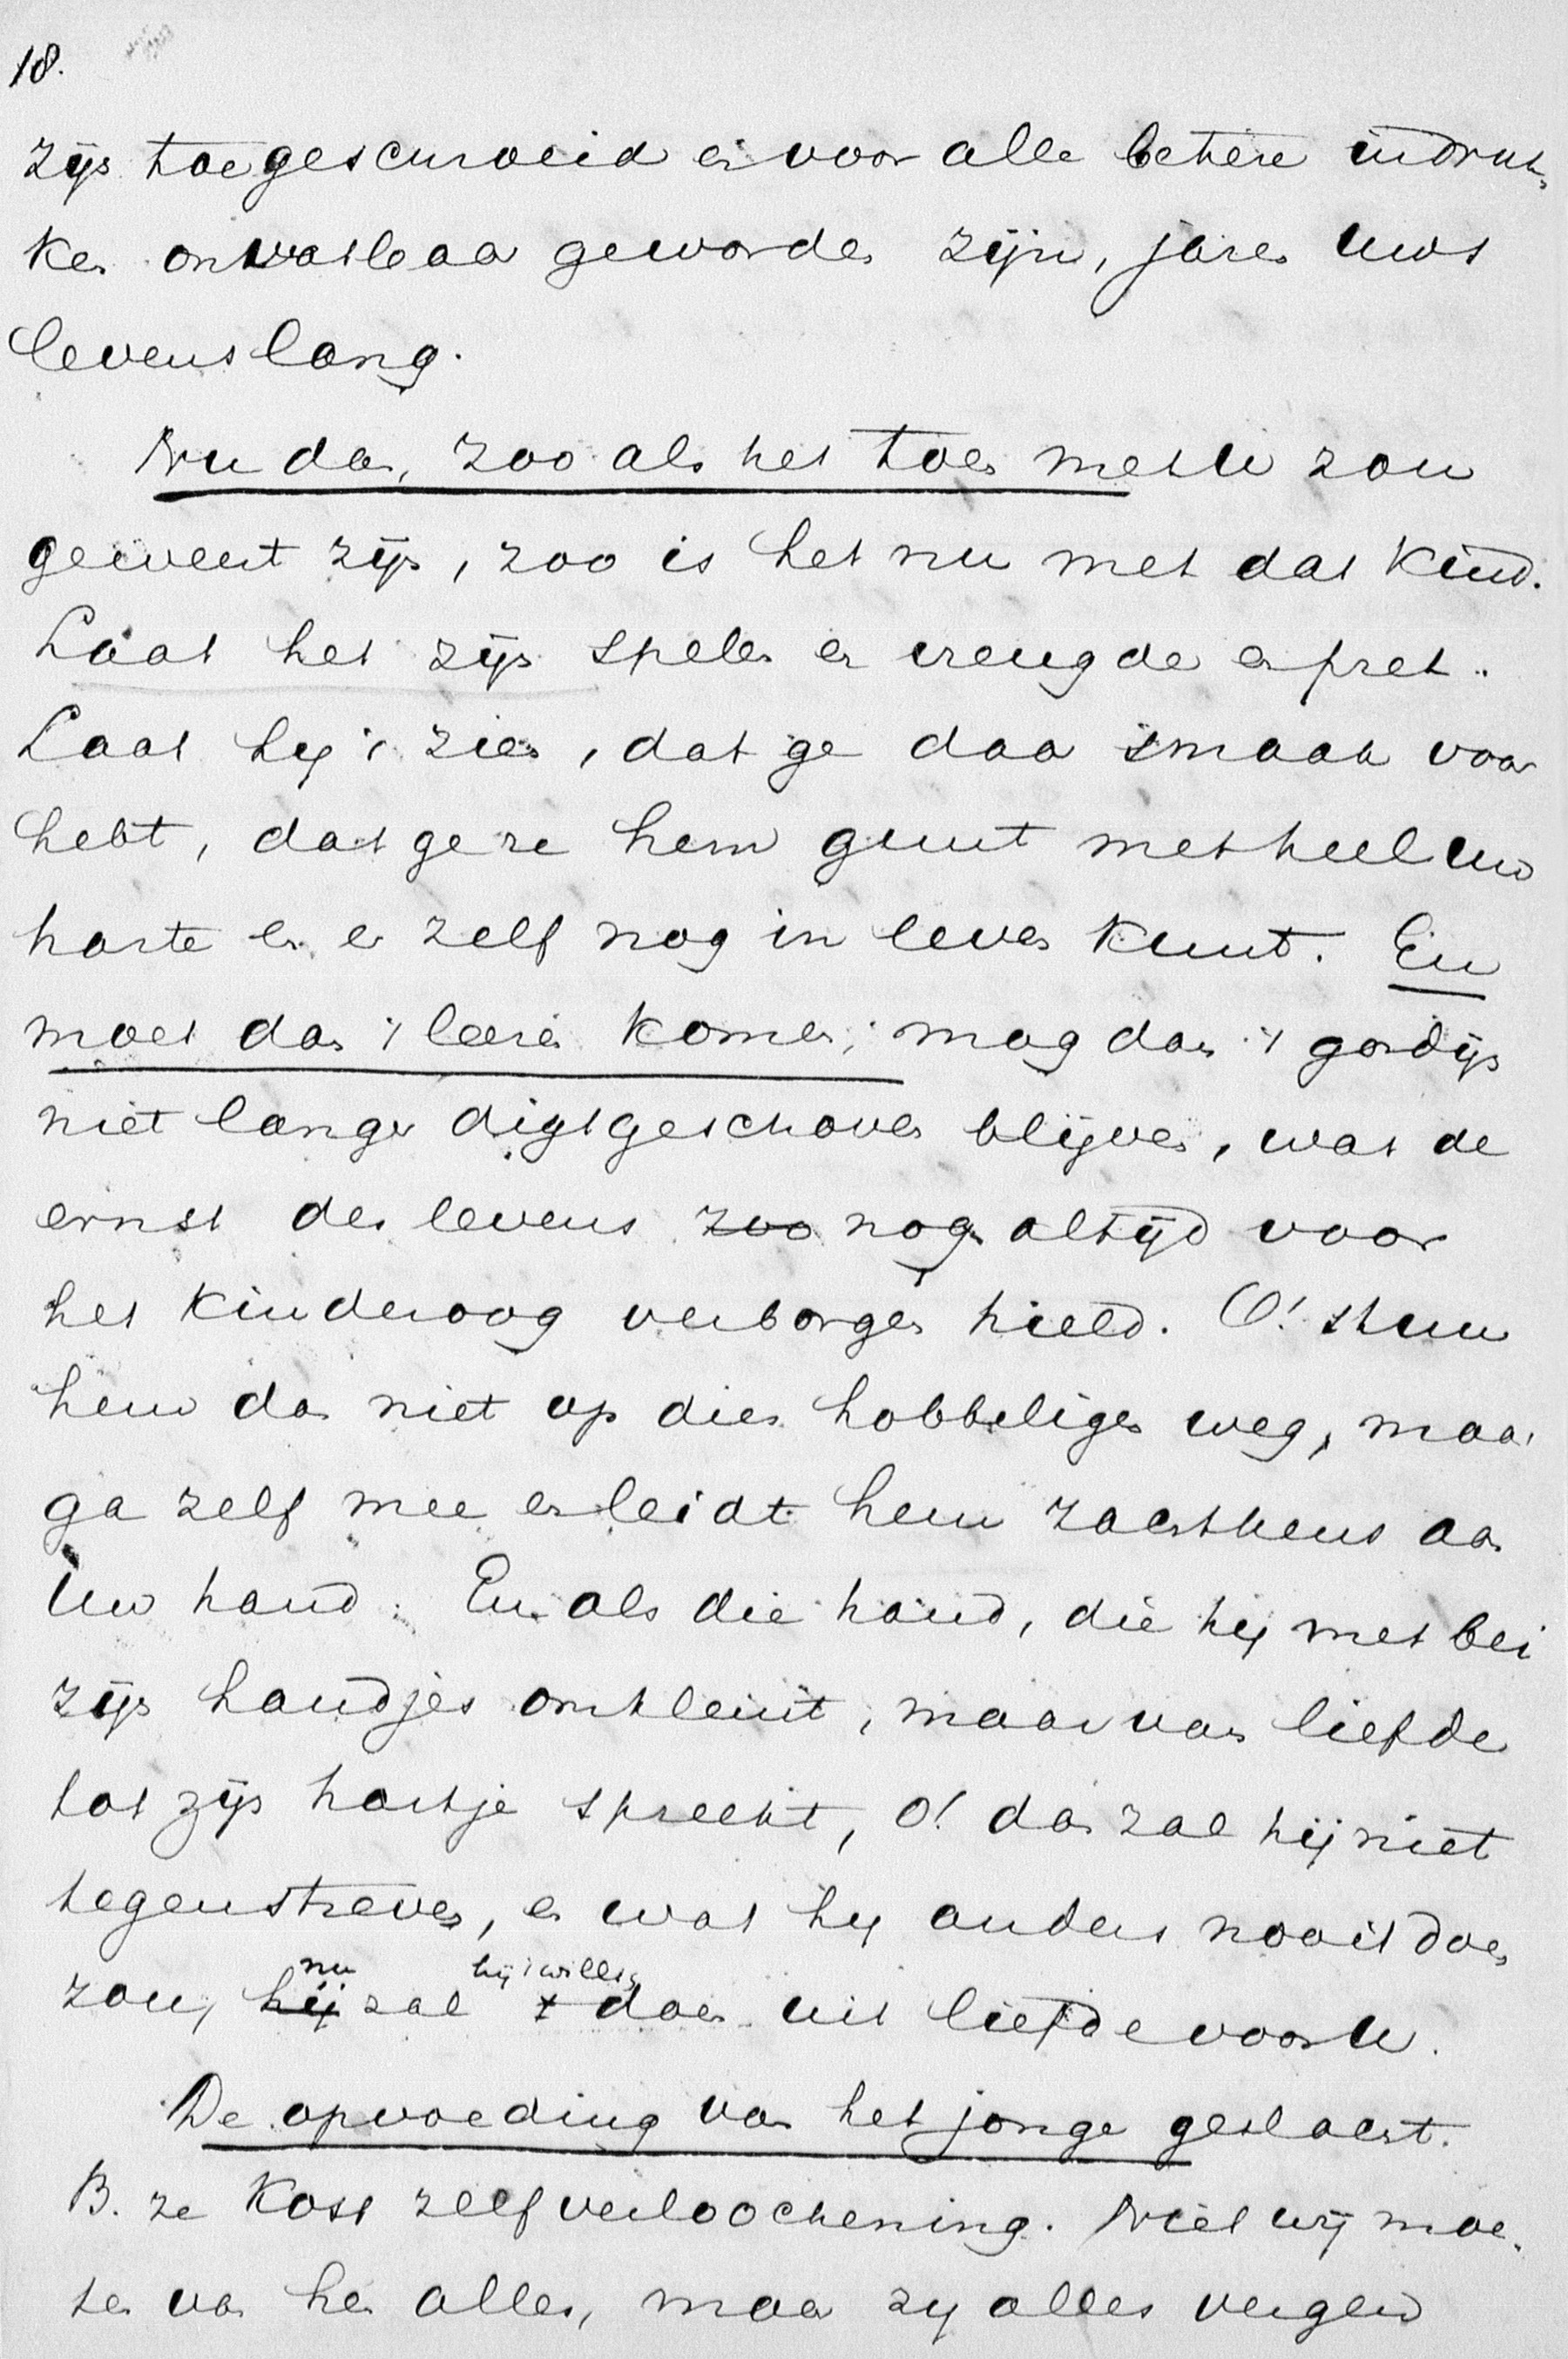 18.
zijn toegeschroeid en voor alle betere indruk-
ken onvatbaar geworden zijn, jaren uws
levens lang.
Nu dan, zoo als het toen met U zou
geweest zijn, zoo is het nu met dat kind.
Laat het zijn spelen en vreugde en pret.
Laat hij 't zien, dat ge daar smaak voor
hebt, dat ge ze hem gunt met heel uw
harte en er zelf nog in leven kunt. En
moet dan 't leeren komen; mag dan 't gordijn
niet langer digtgeschoven blijven, wat de
ernst des levens zoo nog altijd voor
het kinderoog verborgen hield. O! stuur
hem dan niet op dien hobbeligen weg, maar
ga zelf mee en leidt hem zachtkens aan
Uw hand. En als die hand, die hij met bei
zijn handjes omklemt, maar van liefde
tot zijn hartje spreekt, O! dan zal hij niet
tegenstreven, en wat hij anders nooit doen
nu hij 't willig
zou, hij zal 't doen uit liefde voor U.
De opvoeding van het jonge geslacht.
B. ze kost zelfverloochening. Niet wij moe-
ten van hen alles, maar zij alles vergen